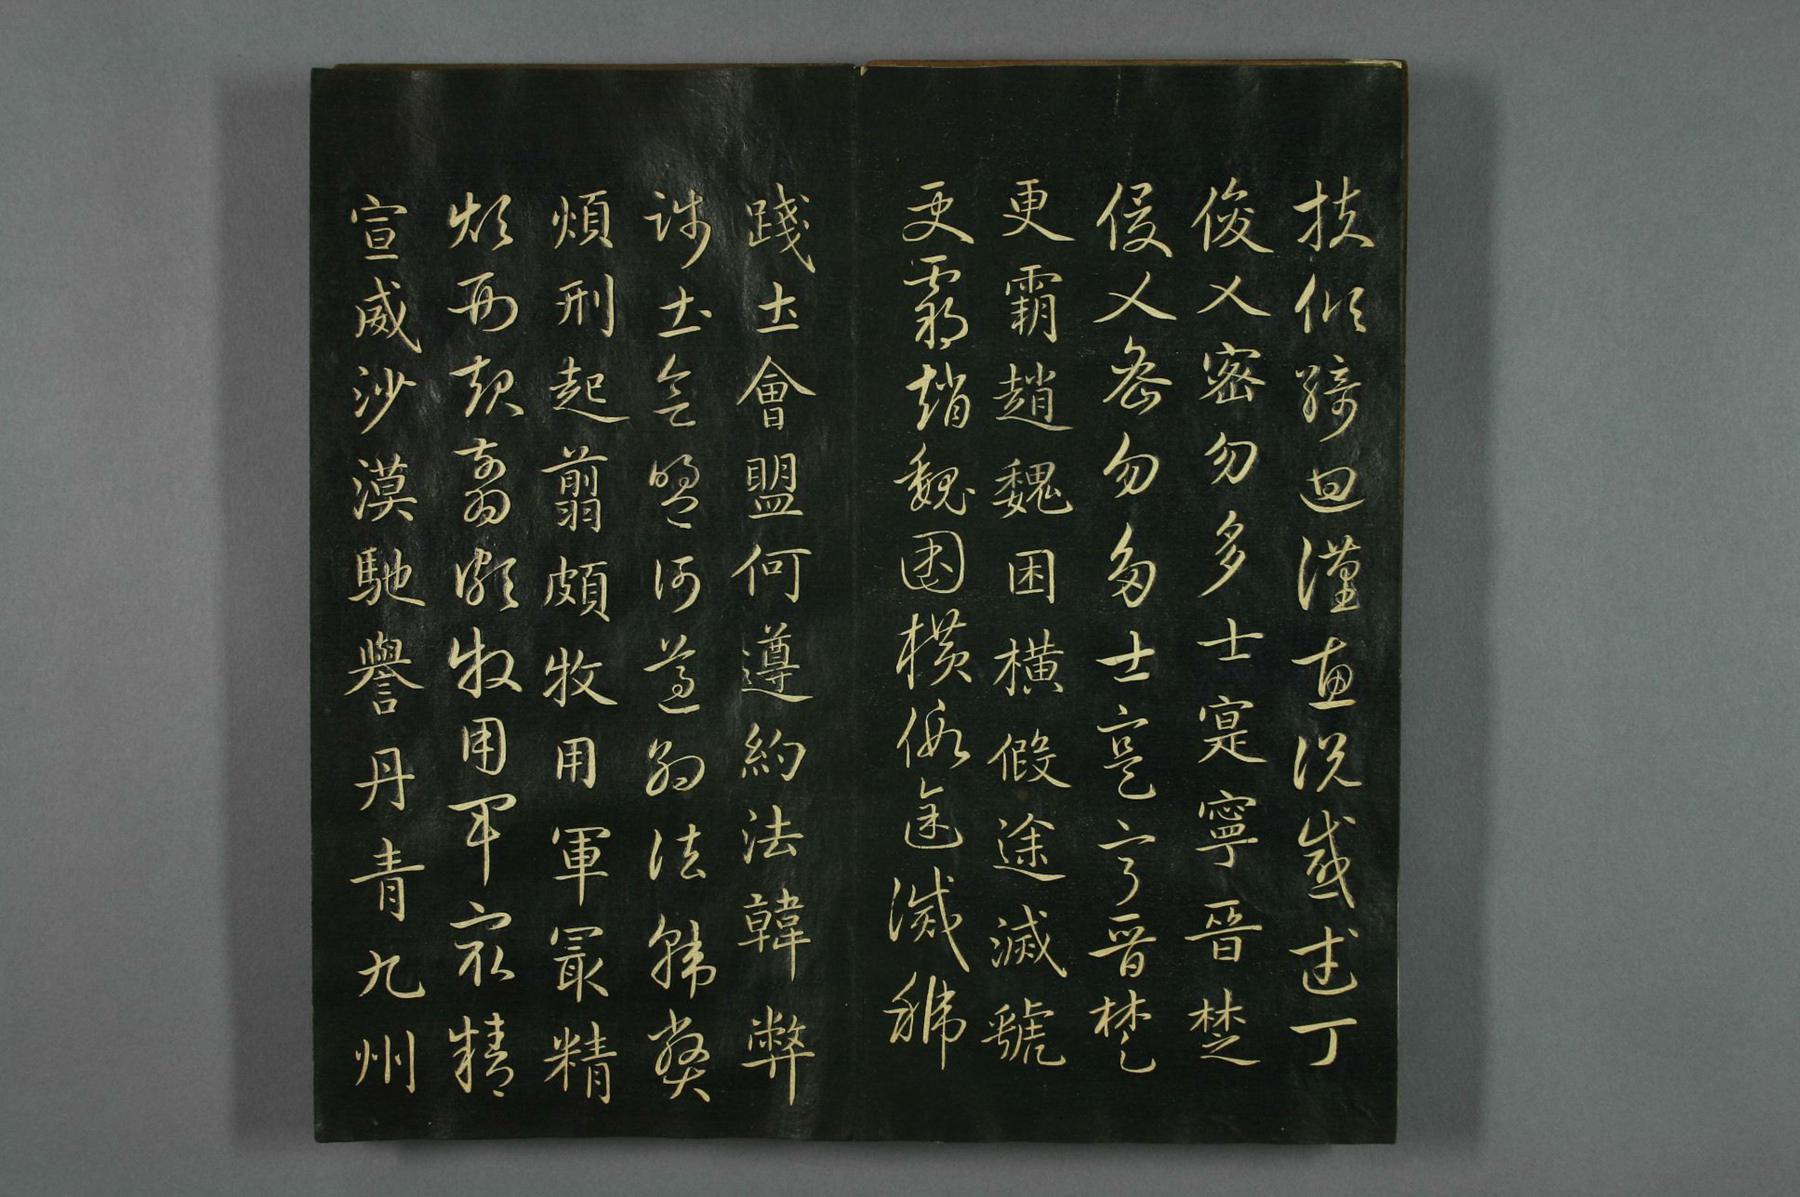 扶傾綺迴漢惠說感武丁
俊乂密勿多士寔寧晉楚
俊乂密勿多士寔寧晉楚
更霸趙魏困橫假途滅虢
更霸趙魏困橫假途滅虢
踐土會盟何遵約法韓弊
踐土會盟何遵約法韓弊
煩刑起翦頗牧用軍最精
煩刑起翦頗牧用軍最精
宣威沙漠馳譽丹青九州